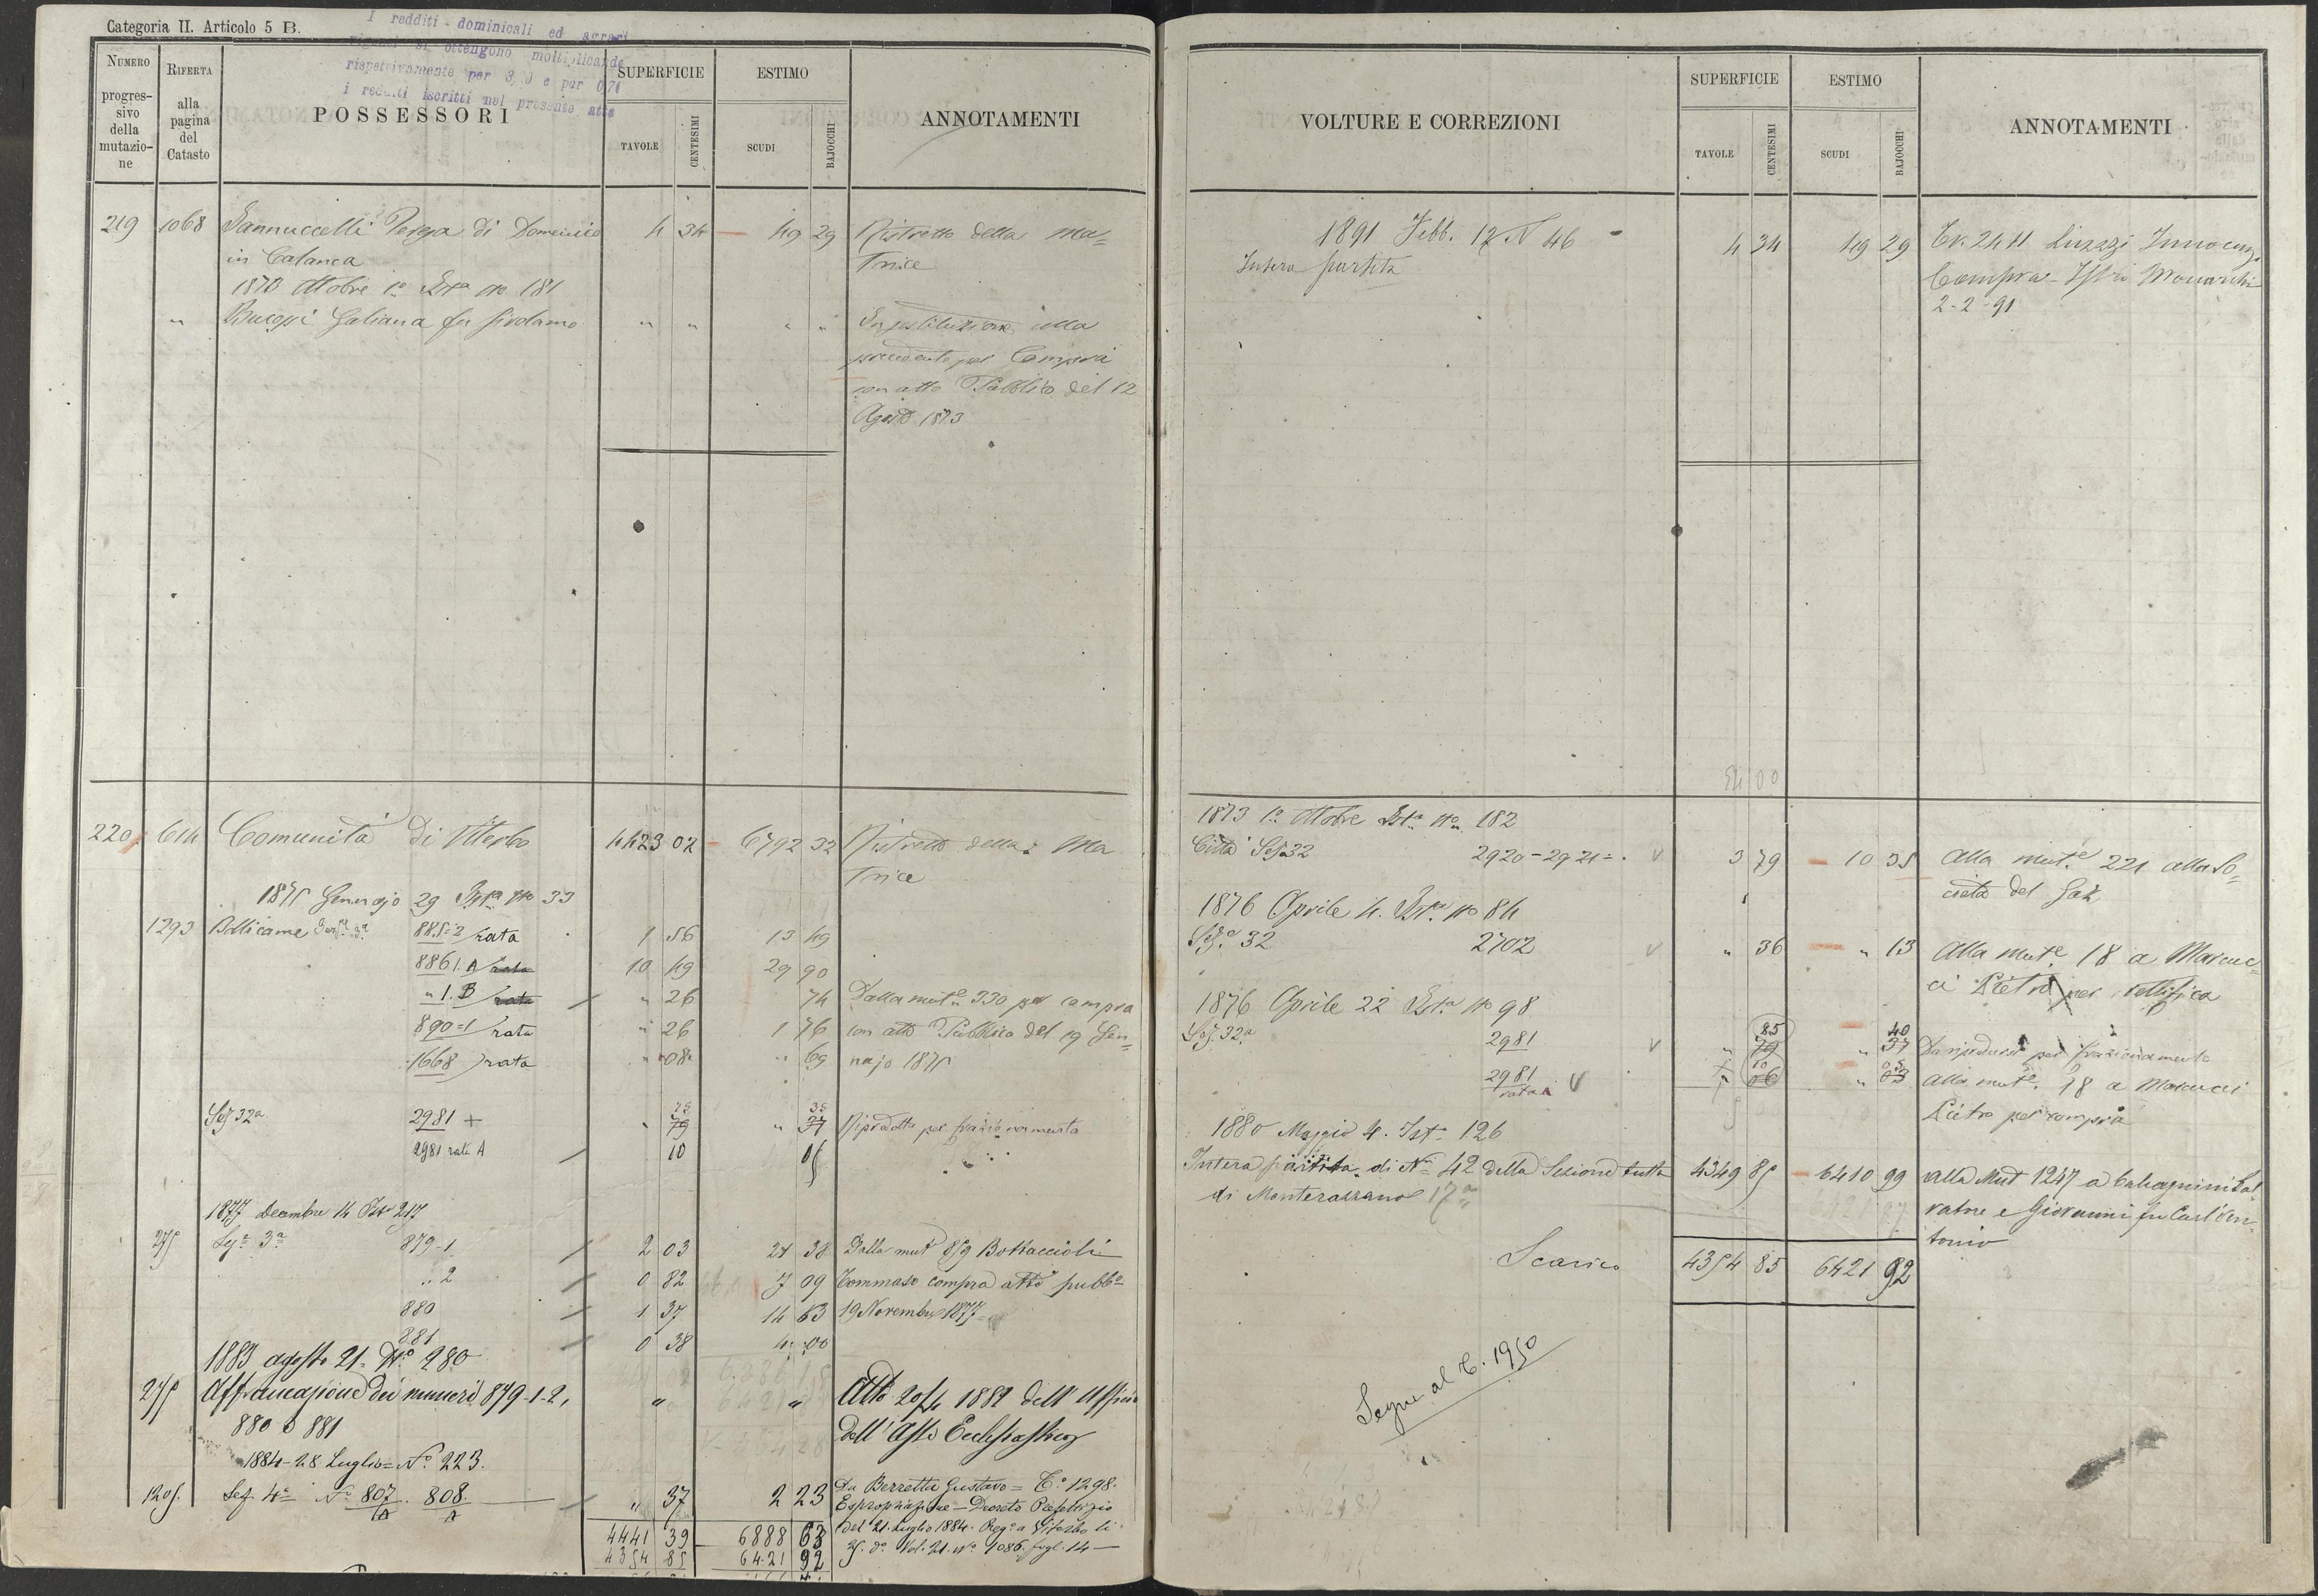 Categoria II. Articolo 5 B.
I redditi dominicali ed agrari
si ottengono moltiplicando
rispettivamente per e per
i redditi iscritti nel presente atto
NUMERO
progres-
sivo
della
mutazio-
ne
RIFERTA
alla
pagina
del
Catasto
POSSESSORI
SUPERFICIE
TAVOLE
CENTESIMI
ESTIMO
SCUDI
BAJOCCHI
ANNOTAMENTI
219 1068 di Domenico 4 34 49 29 Ristretto della Ma=
in Calanca trice
1873 Ottobre 1o Ista No 181
" Galiana fu Girolamo " " " " In sostituzione alla
precedente per Compra
con atto Pubblico del 12
Agosto 1873
220 614 Comunità di Viterbo 4423 02 6792 32 Ristretto della Ma
trice
1875 Gennajo 29 Ista No 33
1293 Bollicame Sez.e 3a 885=2 rata 1 56 13 49
886 1.A rata 10 49 29 90
" 1.B rata " 26 74 Dalla mut.e 330 per compra
890=1 rata " 26 1 76 con atto Pubblico del 19 Gen=
1668 rata " 08 " 69 najo 1875
Sez 32a 2981 + " 79 " 37 Riprodotto per frazionamento
2981 rata A 10 05
1877 Decembre 14 Ista 217
275 Seze 3a 879-1. 2 03 21 38 Dalla mut 859 Bottaccioli
" 2 0 82 7 09 Tommaso compra atto pubbo
880 1 37 14 63 19 Novembre 1877
881 0 38 4 00
1883 agosto 21. No 280
275 Affrancazione dei numeri 879-1-2, " " Atto 20/4 1882 dell'Ufficio
880 e 881 dell'Asse Ecclesiastico
1884-28 Luglio= No 223.
1205. Sez. 4a No 807/A. 808./A " 37 2 23 Da Berretta Gustavo = Co 1298.
Espropriazione - Decreto Prefettizio
4441 39 6888 63 del 21 Luglio 1884. Rego a Viterbo li
4354 85 6421 92 25. do Vol. 21. No 1086. fogl. 14 -
VOLTURE E CORREZIONI
SUPERFICIE
TAVOLE
CENTESIMI
ESTIMO
SCUDI
BAJOCCHI
ANNOTAMENTI
1891 Febb. 17 N 46
Intera partita 4 34 49 29 Innocenzo
Compra
2-2-91
1873 1o Ottobre Ista No 182
Città Seza 32 2920=2921= 3 79 10 35 Alla mut.e 221 alla So=
cietà del Gaz
1876 Aprile 4. Ista No 84
Seze 32 2702 " 36 " 13 Alla mut.e 18 a Marcuc=
ci Pietro per rettifica
1876 Aprile 22 Ista No 98
Sez. 32a 2981 85 79 40 37 Da riprodursi per frazionamento
2981 rata A 10 06 05 03 Alla mut.e 18 a Marcucci
Pietro per compra
1880 Maggio 4. Ista 126
Intera partita di Ni 42 della Sezione tutta 4349 85 6410 99 alla Mut 1247 a Sal=
di Monterazzano 17a vatore e Giovanni fu Carl'An=
tonio
Scarico 4354 85 6421 92
Segue al C. 1950